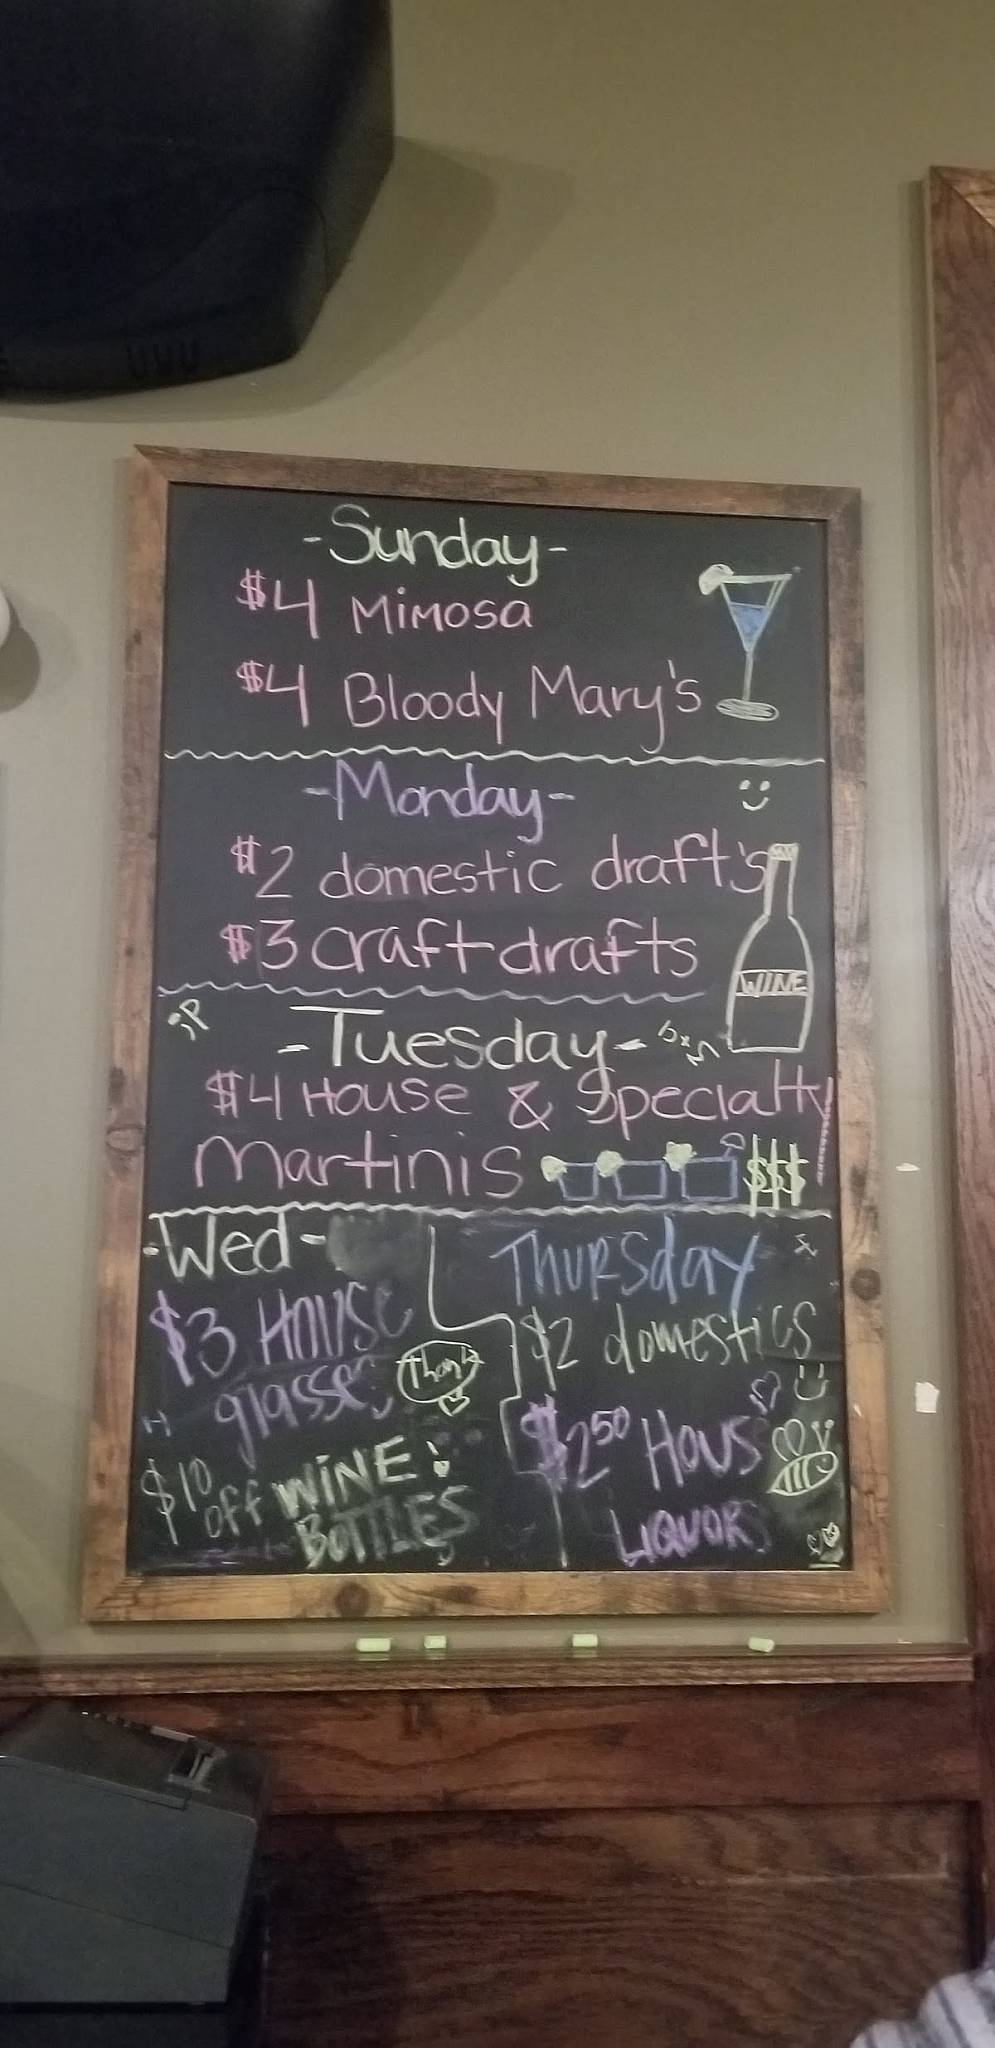 -Sunday-
$4 Mimosa
$4 Bloody Mary's
-Monday-
$2 domestic draft's
$3 craft drafts
WINE
;P
-Tuesday-
$4 House & Specialty
Martinis $$$
-Wed-
$3 House
glasses
Thank
$10 off WINE
BOTTLES
Thursday
$2 domestics
$2.50 Hous
LiQUORS